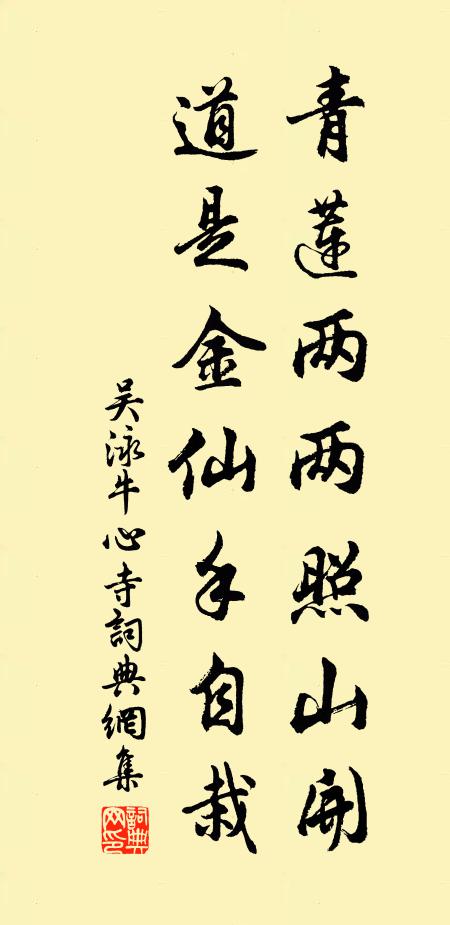 青蓮两两照山開
道是金仙手自栽
吴泳牛心寺詞典網集
詞典网印